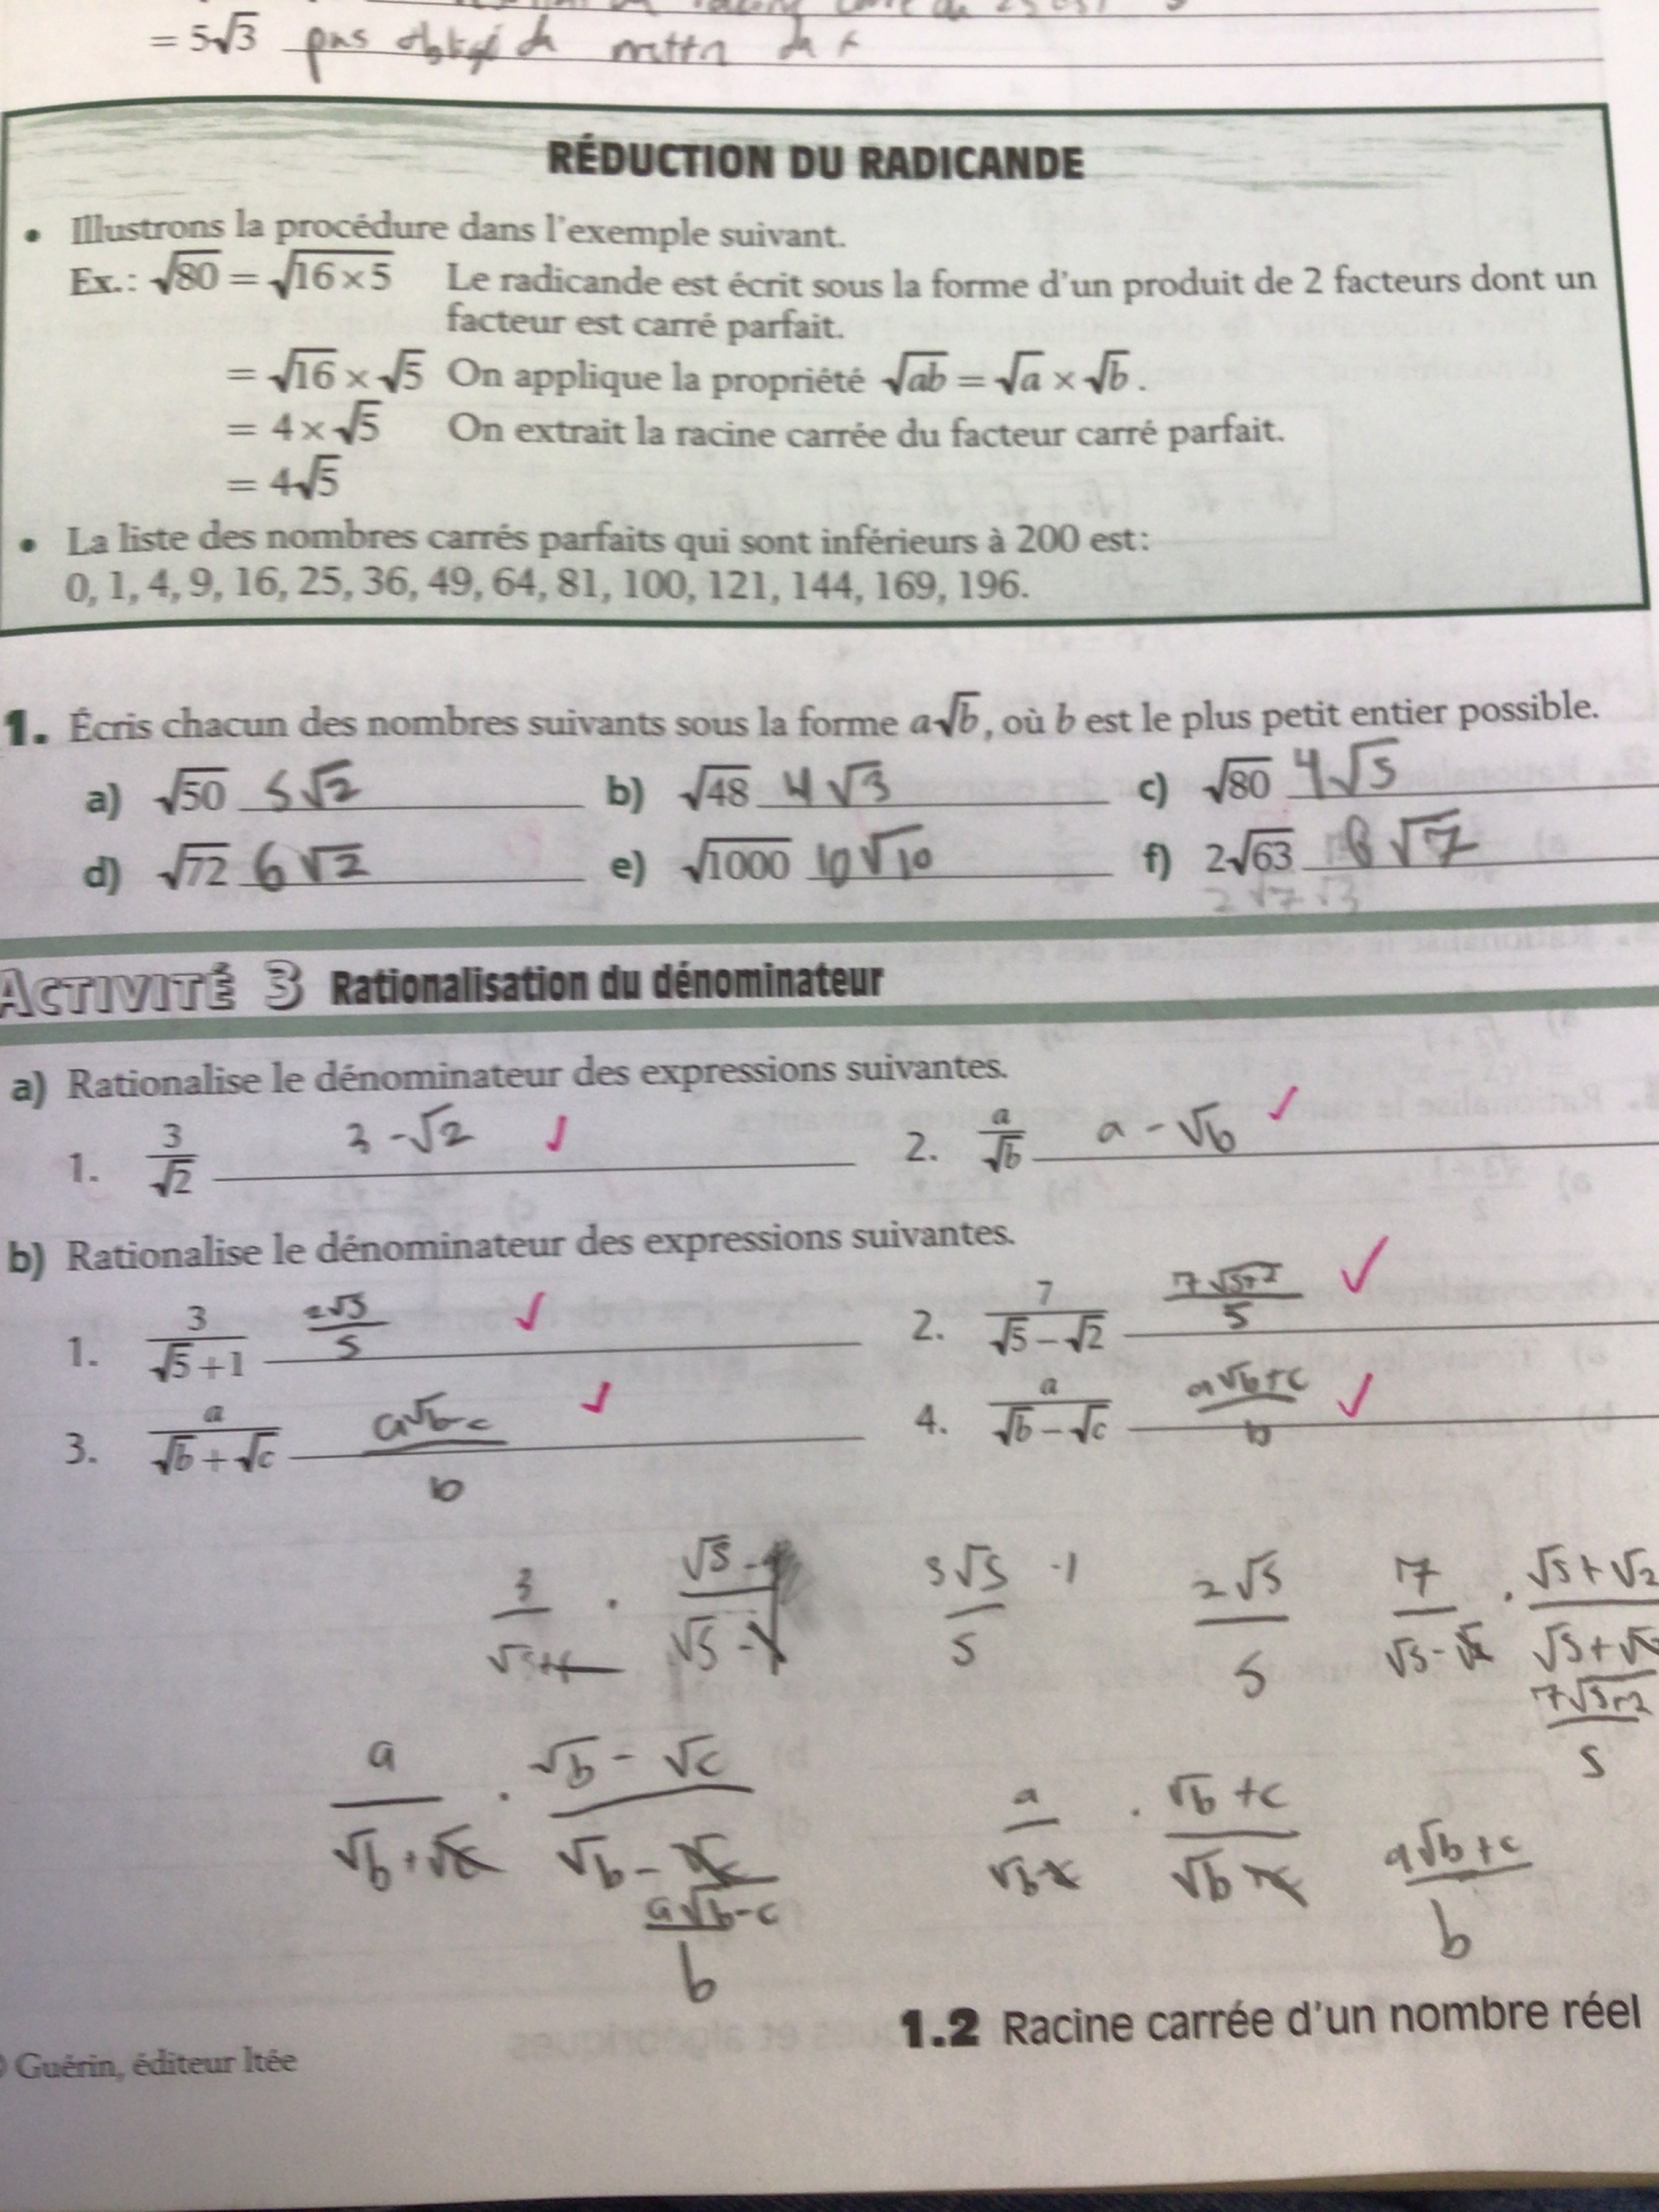 = 5√3 pas obligé de mettre de x
RÉDUCTION DU RADICANDE
• Illustrons la procédure dans l'exemple suivant.
Ex.: √80 = √16×5 Le radicande est écrit sous la forme d'un produit de 2 facteurs dont un
facteur est carré parfait.
= √16 × √5 On applique la propriété √ab = √a × √b.
= 4×√5 On extrait la racine carrée du facteur carré parfait.
= 4√5
• La liste des nombres carrés parfaits qui sont inférieurs à 200 est:
0, 1, 4, 9, 16, 25, 36, 49, 64, 81, 100, 121, 144, 169, 196.
1. Écris chacun des nombres suivants sous la forme a√b, où b est le plus petit entier possible.
a) √50 5√2 b) √48 4√3 c) √80 4√5
d) √72 6√2 e) √1000 10√10 f) 2√63 6√7
2√7 √3
ACTIVITÉ 3 Rationalisation du dénominateur
a) Rationalise le dénominateur des expressions suivantes.
1. 3/√2 3-√2 ✓ 2. a/√b a-√b ✓
b) Rationalise le dénominateur des expressions suivantes.
1. 3/(√5+1) 2√5/5 ✓ 2. 7/(√5-√2) 7√5+2/5 ✓
3. a/(√b+√c) a√b-c/b ✓ 4. a/(√b-√c) a√b+c/b ✓
3 · √5- 3√5 -1 2√5 7 · √5+√2
√5 - 5 5 √5-√2 √5+√2
7√5+2
5
a · √b - √c a · √b+c a√b+c
√b+√c √b-√c √b-c √b+c b
a√b-c
b
1.2 Racine carrée d'un nombre réel
Guérin, éditeur ltée